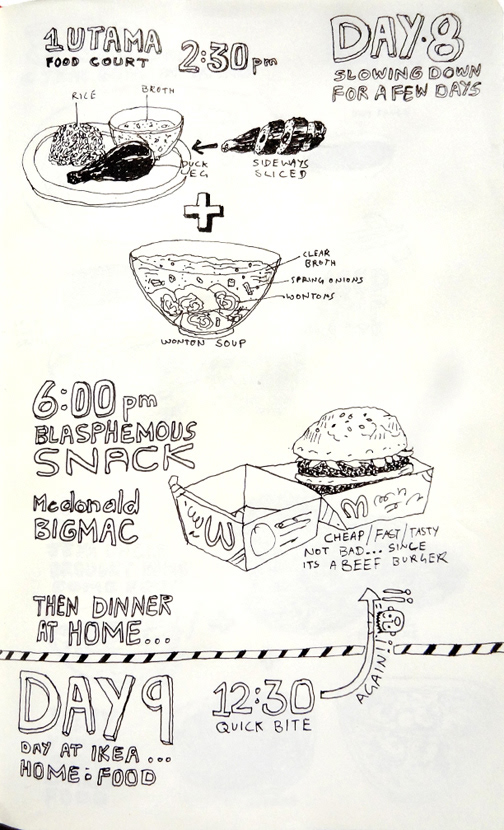 1 UTAMA
FOOD COURT
2:30 pm
DAY·8
SLOWING DOWN
FOR A FEW DAYS
RICE
BROTH
DUCK
LEG
SIDEWAYS
SLICED
+
CLEAR
BROTH
SPRING ONIONS
WONTONS
WONTON SOUP
6:00 pm
BLASPHEMOUS
SNACK
Mcdonald
BIGMAC
CHEAP/FAST/TASTY
NOT BAD... SINCE
ITS A BEEF BURGER
THEN DINNER
AT HOME...
AGAIN!
DAY 9
DAY AT IKEA...
HOME:FOOD
12:30
QUICK BITE